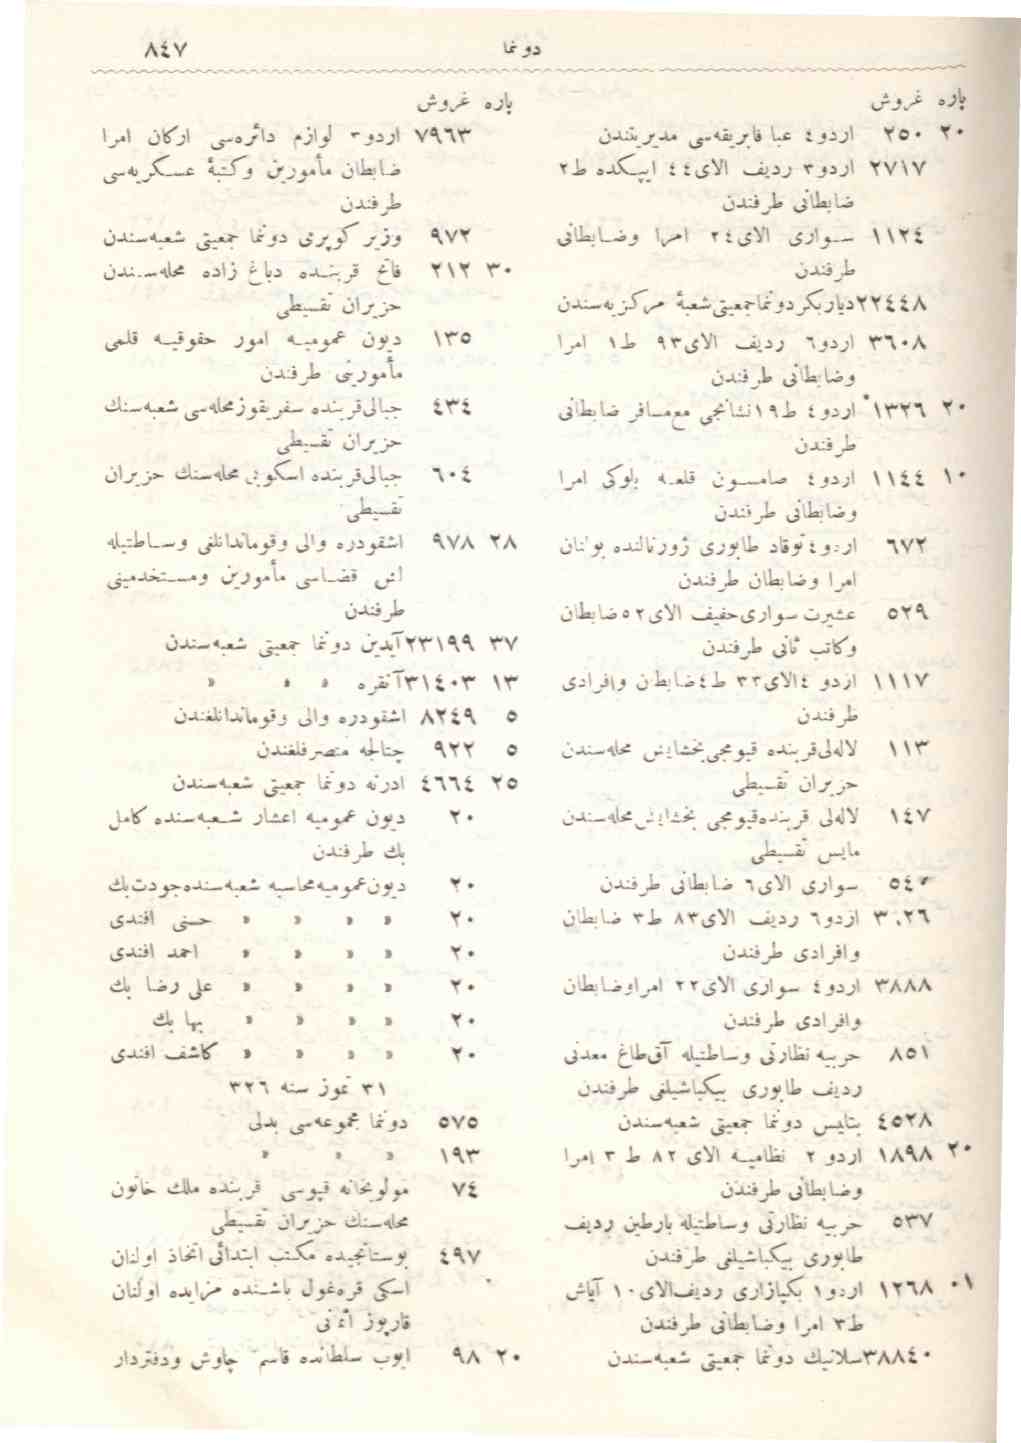 دوغا ٨٤٧
پاره غروش
٢٠ ٢٥٠ اردو ٤ عبا فابریقه‌سی مدیریتندن
٢٧١٧ اردو ٣ ردیف الای ٤٤ ایپـکده ط ٢
ضابطانی طرفندن
١١٢٤ سـواری الای ٢٤ امرا وضـابطانی
طرفندن
٢٢٤٤٨ دیاربکر دونما جمعیتی شعبهٔ مرکزیه‌سندن
٣٦٠٨ اردو ٦ ردیف الای ٩٣ ط ١ امرا
وضابطانی طرفندن
٢٠ ١٣٢٦ اردو ٤ ط ١٩ نشانجی مع مسافر ضابطانی
طرفندن
١٠ ١١٤٤ اردو ٤ صامسـون قلعـه بلوکی امرا
وضابطانی طرفندن
٦٧٢ اردو ٤ توقاد طابوری ژورنالنده بولنان
امرا وضابطان طرفندن
٥٢٩ عشیرت سواری خفیف الای ٥٢ ضابطان
وکاتب ثانی طرفندن
١١١٧ اردو ٤ الای ٣٣ ط ٤ ضابطان وافرادی
طرفندن
١١٣ لاله‌لی قربنده قیومجی بخشایش محله‌سندن
حزیران تقسیطی
١٤٧ لاله‌لی قربنده قیومجی بخشایش محله‌سندن
مایس تقسیطی
٥٤٠ سواری الای ٦ ضابطانی طرفندن
٣٠٢٦ اردو ٦ ردیف الای ٨٣ ط ٣ ضابطان
وافرادی طرفندن
٣٨٨٨ اردو ٤ سواری الای ٢٢ امرا وضابطان
وافرادی طرفندن
٨٥١ حربیه نظارتی وساطتیله آق طاغ معدنی
ردیف طابوری بیکباشیلغی طرفندن
٤٥٢٨ بتلیس دونما جمعیتی شعبه‌سندن
٢٠ ١٨٩٨ اردو ٢ نظامیـه الای ٨٢ ط ٣ امرا
وضابطانی طرفندن
٥٣٧ حربیه نظارتی وساطتیله بارطین ردیف
طابوری بیکباشیلغی طرفندن
٠١ ١٢٦٨ اردو ١ بکپازاری ردیف الای ١٠ آیاش
ط ٣ امرا وضابطانی طرفندن
٣٨٨٤٠ سلانیك دونما جمعیتی شعبه‌سندن
پاره غروش
٧٩٦٣ اردو ٣ لوازم دائره‌سی ارکان امرا
ضابطان مأمورین وکتبهٔ عسـکریه‌سی
طرفندن
٩٧٢ وزیر کوپری دونما جمعیتی شعبه‌سندن
٣٠ ٢١٢ فاتح قربنـده دباغ زاده محله‌سـندن
حزیران تقسیطی
١٣٥ دیون عمومیـه امور حقوقیـه قلمی
مأمورینی طرفندن
٤٣٤ جبالی قربنده سفریقوز محله‌سی شعبه‌سنك
حزیران تقسیطی
٦٠٤ جبالی قربنده اسکوبی محله‌سنك حزیران
تقسیطی
٢٨ ٩٧٨ اشقودره والی وقوماندانلغی وساطتیله
قضاسی مأمورین ومستخدمینی
طرفندن
٣٧ ٢٣١٩٩ آیدین دونما جمعیتی شعبه‌سندن
١٣ ٣١٤٠٣ آنقره » » »
٥ ٨٢٤٩ اشقودره والی وقوماندانلغندن
٥ ٩٢٢ چتالجه متصرفلغندن
٢٥ ٤٦٦٤ ادرنه دونما جمعیتی شعبه‌سندن
٢٠ دیون عمومیه اعشار شعبه‌سنده کامل
بك طرفندن
٢٠ دیون عمومیه محاسبه شعبه‌سنده جودت بك
٢٠ » » » » حسنی افندی
٢٠ » » » » احمد افندی
٢٠ » » » » علی رضا بك
٢٠ » » » » بها بك
٢٠ » » » » کاشف افندی
٣١ تموز سنه ٣٢٦
٥٧٥ دونما مجموعه‌سی بدلی
١٩٣ » » »
٧٤ مولویخانه قپوسی قربنده ملك خاتون
محله‌سنك حزیران تقسیطی
٤٩٧ بوستانجیده مکتب ابتدائی اتخاذ اولنان
اسکی قره‌غول باشنده مزایده اولنان
قارپوز اثمانی
٢٠ ٩٨ ایوب سلطانده قاسم چاوش ودفتردار